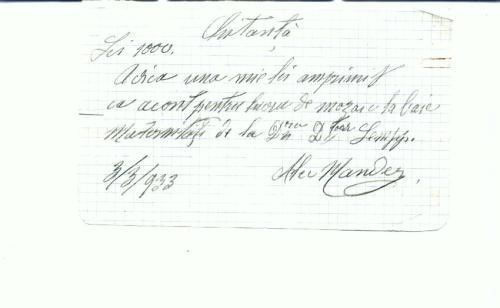 Chitanță
Lei 1000.
Adica una mie lei am primit
ca acont pentru lucru de mozaic la baie
Maternităței de la Dna Dtor
3/3/933 Alec Mandez